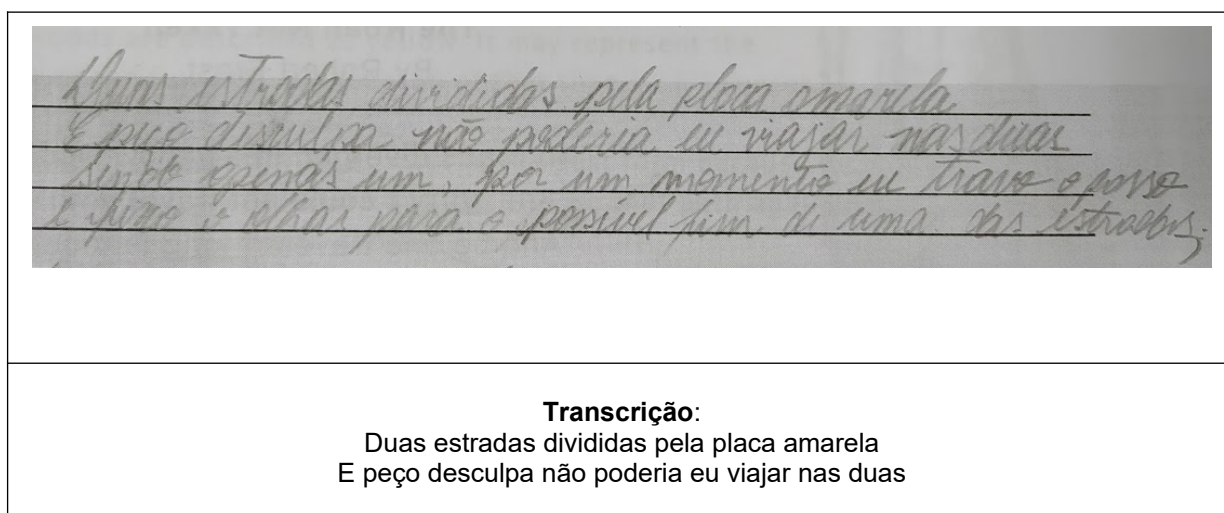 Duas estradas divididas pela placa amarela
E peço desculpa não poderia eu viajar nas duas
sendo apenas um, por um momento eu travo o passo
e fixo o olhar para o possível fim de uma das estradas.
Transcrição:
Duas estradas divididas pela placa amarela
E peço desculpa não poderia eu viajar nas duas